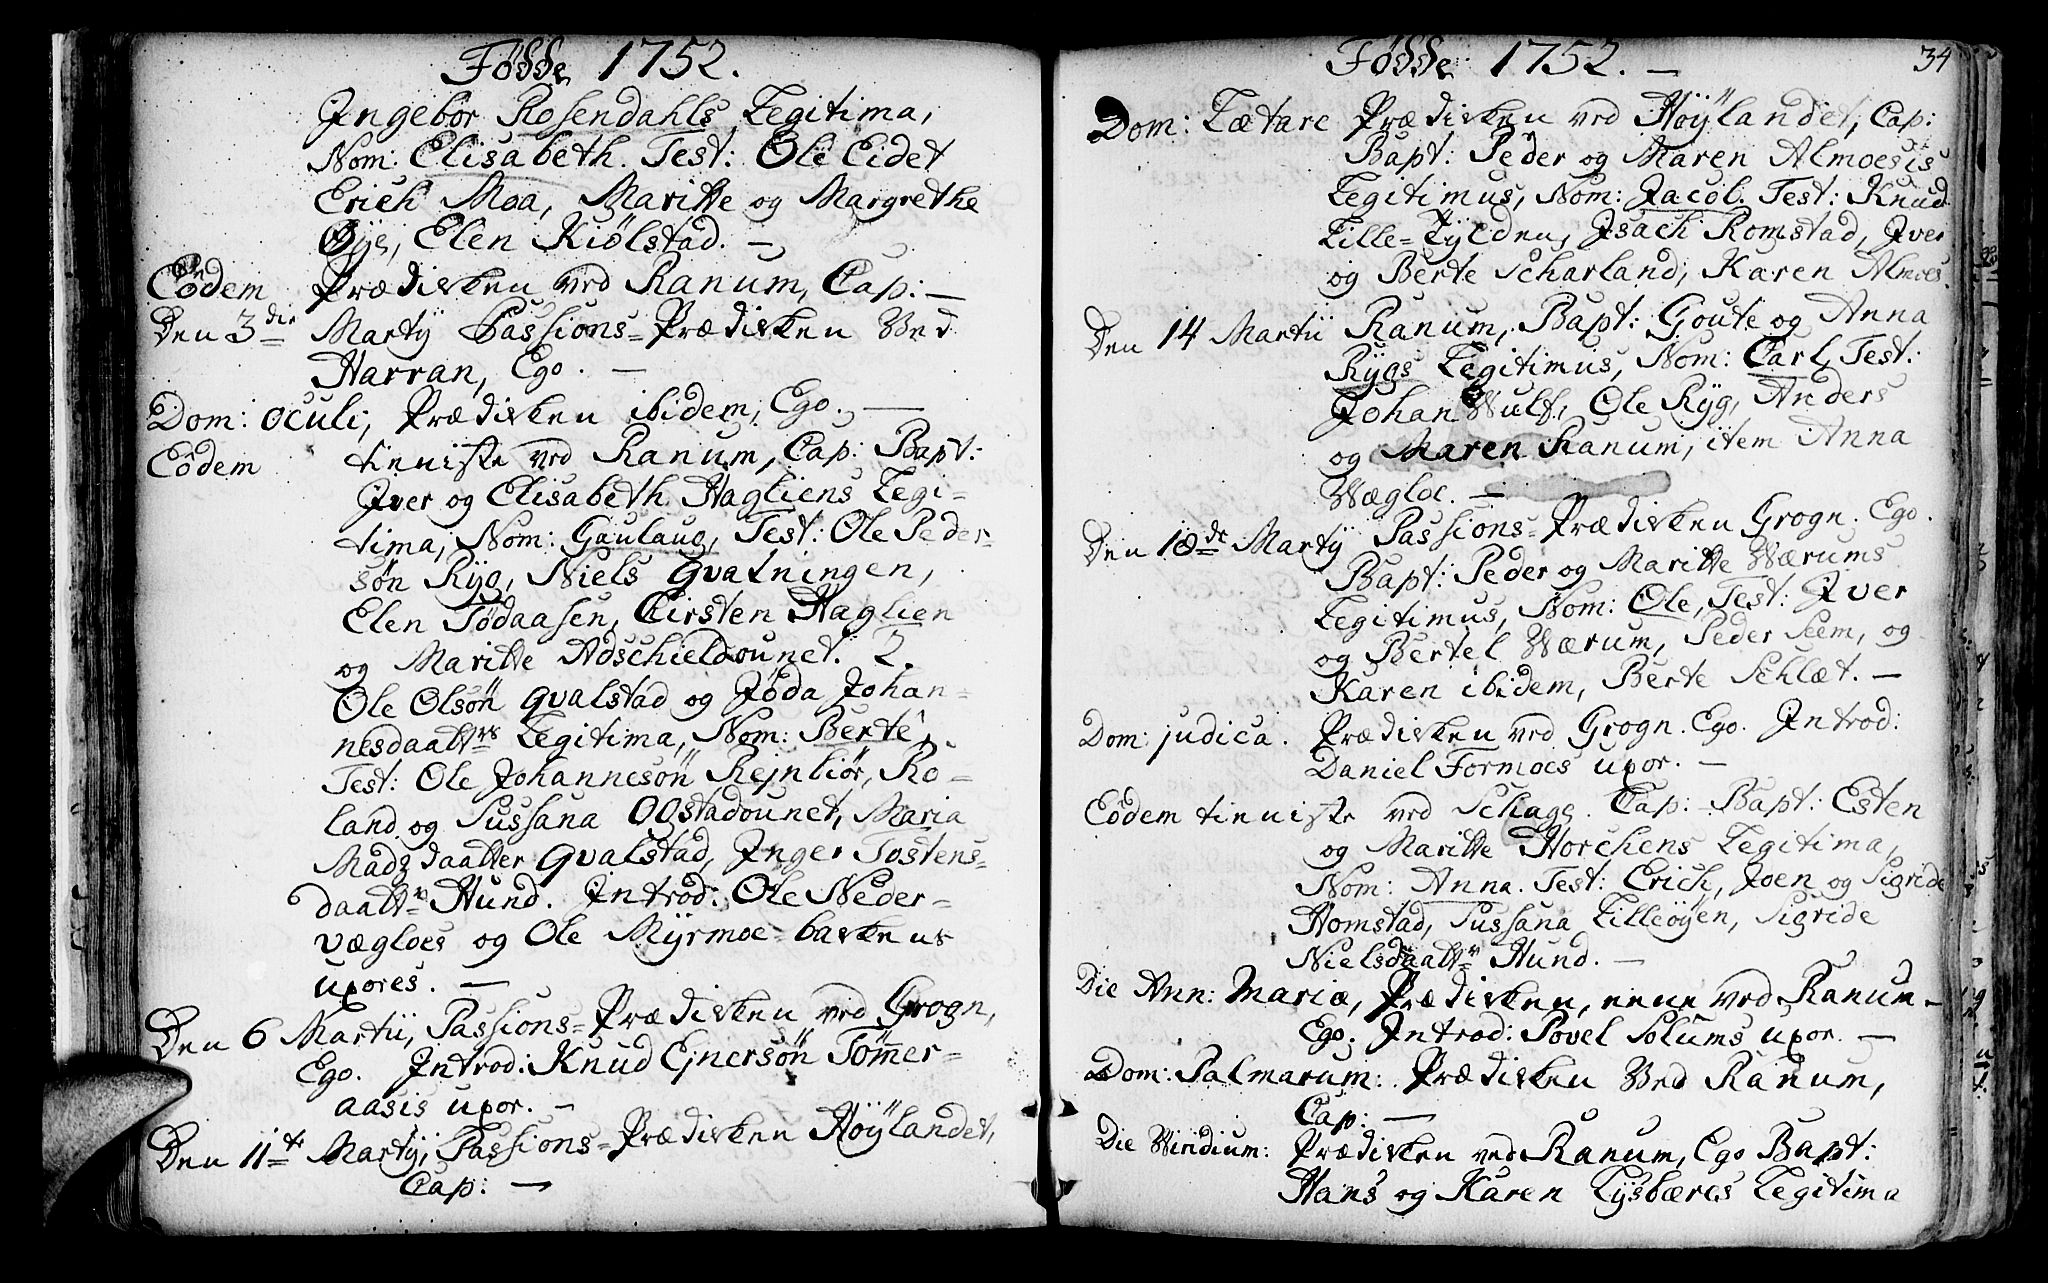 Födde 1752.
Ingebor Rosendahls Legitima,
Nom: Elisabeth. Test: Ole Eidet
Erich Moa, Maritte og Margrethe
Øye, Elen Kiölstad. —
Eödem Prædicken ved Ranum, Cap: —
Den 3die Martÿ Passions-Prædicken Ved
Harran, Ego. —
Dom: Oculi, Prædicken ibidem, Ego. —
Eödem tieniste ved Ranum, Cap: Bapt:
Iver og Elisabeth Hagliens Legi-
tima, Nom: Gaulaug, Test: Ole Peder-
søn Rÿg, Niels Gvatningen,
Elen Tödaasen, Kirsten Haglien
og Maritte Adschieldounet. 2.
Ole Olsön Gvalstad og Jöda Johan-
nesdaattrs Legitima, Nom: Berte,
Test: Ole Johannesön Rejnliör, Ro-
land og Sussana OOstadounet, Maria
Madz daatter Gvalstad, Inger Tostens-
daattr Hund. Introd: Ole Neder-
vægloes og Ole Mÿrmoe-backens
uxores. —
Den 6 Martii, Passions-Prædicken ved Grogn,
Ego. Introd: Knud Ejnersön Tömer-
aasis uxor. —
Den 11te Martÿ, Passions-Prædicken Höÿlandet,
Cap: —
Födde 1752. —
34
Dom: Lætare Prædicken ved Höÿlandet, Cap:
Bapt: Peder og Maren Almoesis
Legitimus, Nom: Jacob. Test: Knud
Lille-Tÿlden, Isach Romstad, Iver
og Berte Scharland, Karen Almoes.
Den 14 Martii Ranum, Bapt: Goute og Anna
Rÿgs Legitimus, Nom: Carl, Test:
Johan Wulf, Ole Rÿg, Anders
og Maren Ranum, item Anna
Wægloe. —
Den 18de Martÿ Passions-Prædicken Grogn. Ego.
Bapt: Peder og Maritte Wærums
Legitimus, Nom: Ole, Test: Iver
og Bertel Wærum, Peder Seem, og
Karen ibidem, Berte Schlæt. —
Dom: judica. Prædicken ved Grogn. Ego. Introd:
Daniel Formoes uxor. —
Eödem tieniste ved Schage. Cap: Bapt: Esten
og Maritte Horchens Legitima,
Nom: Anna. Test: Erich, Joen og Sigride
Homstad, Sussana Lilleöÿen, Sigride
Nielsdaattr Hund. —
Die Ann: Mariæ, Prædicken, ved Ranum —
Ego. Introd: Povel Solums uxor. —
Dom: Palmarum: Prædicken Ved Ranum,
Cap: —
Die Viridium: Prædicken ved Ranum, Ego Bapt:
Hans og Karen Lysbæres Legitima